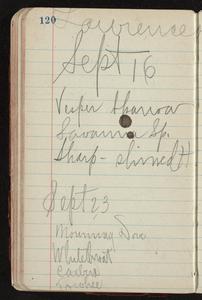 120
Lawrence
Sept 16
Vesper Sparrow
Savanna Sp.
Sharp-shinned H
Sept 23
Mourning Dove
Whitebreast